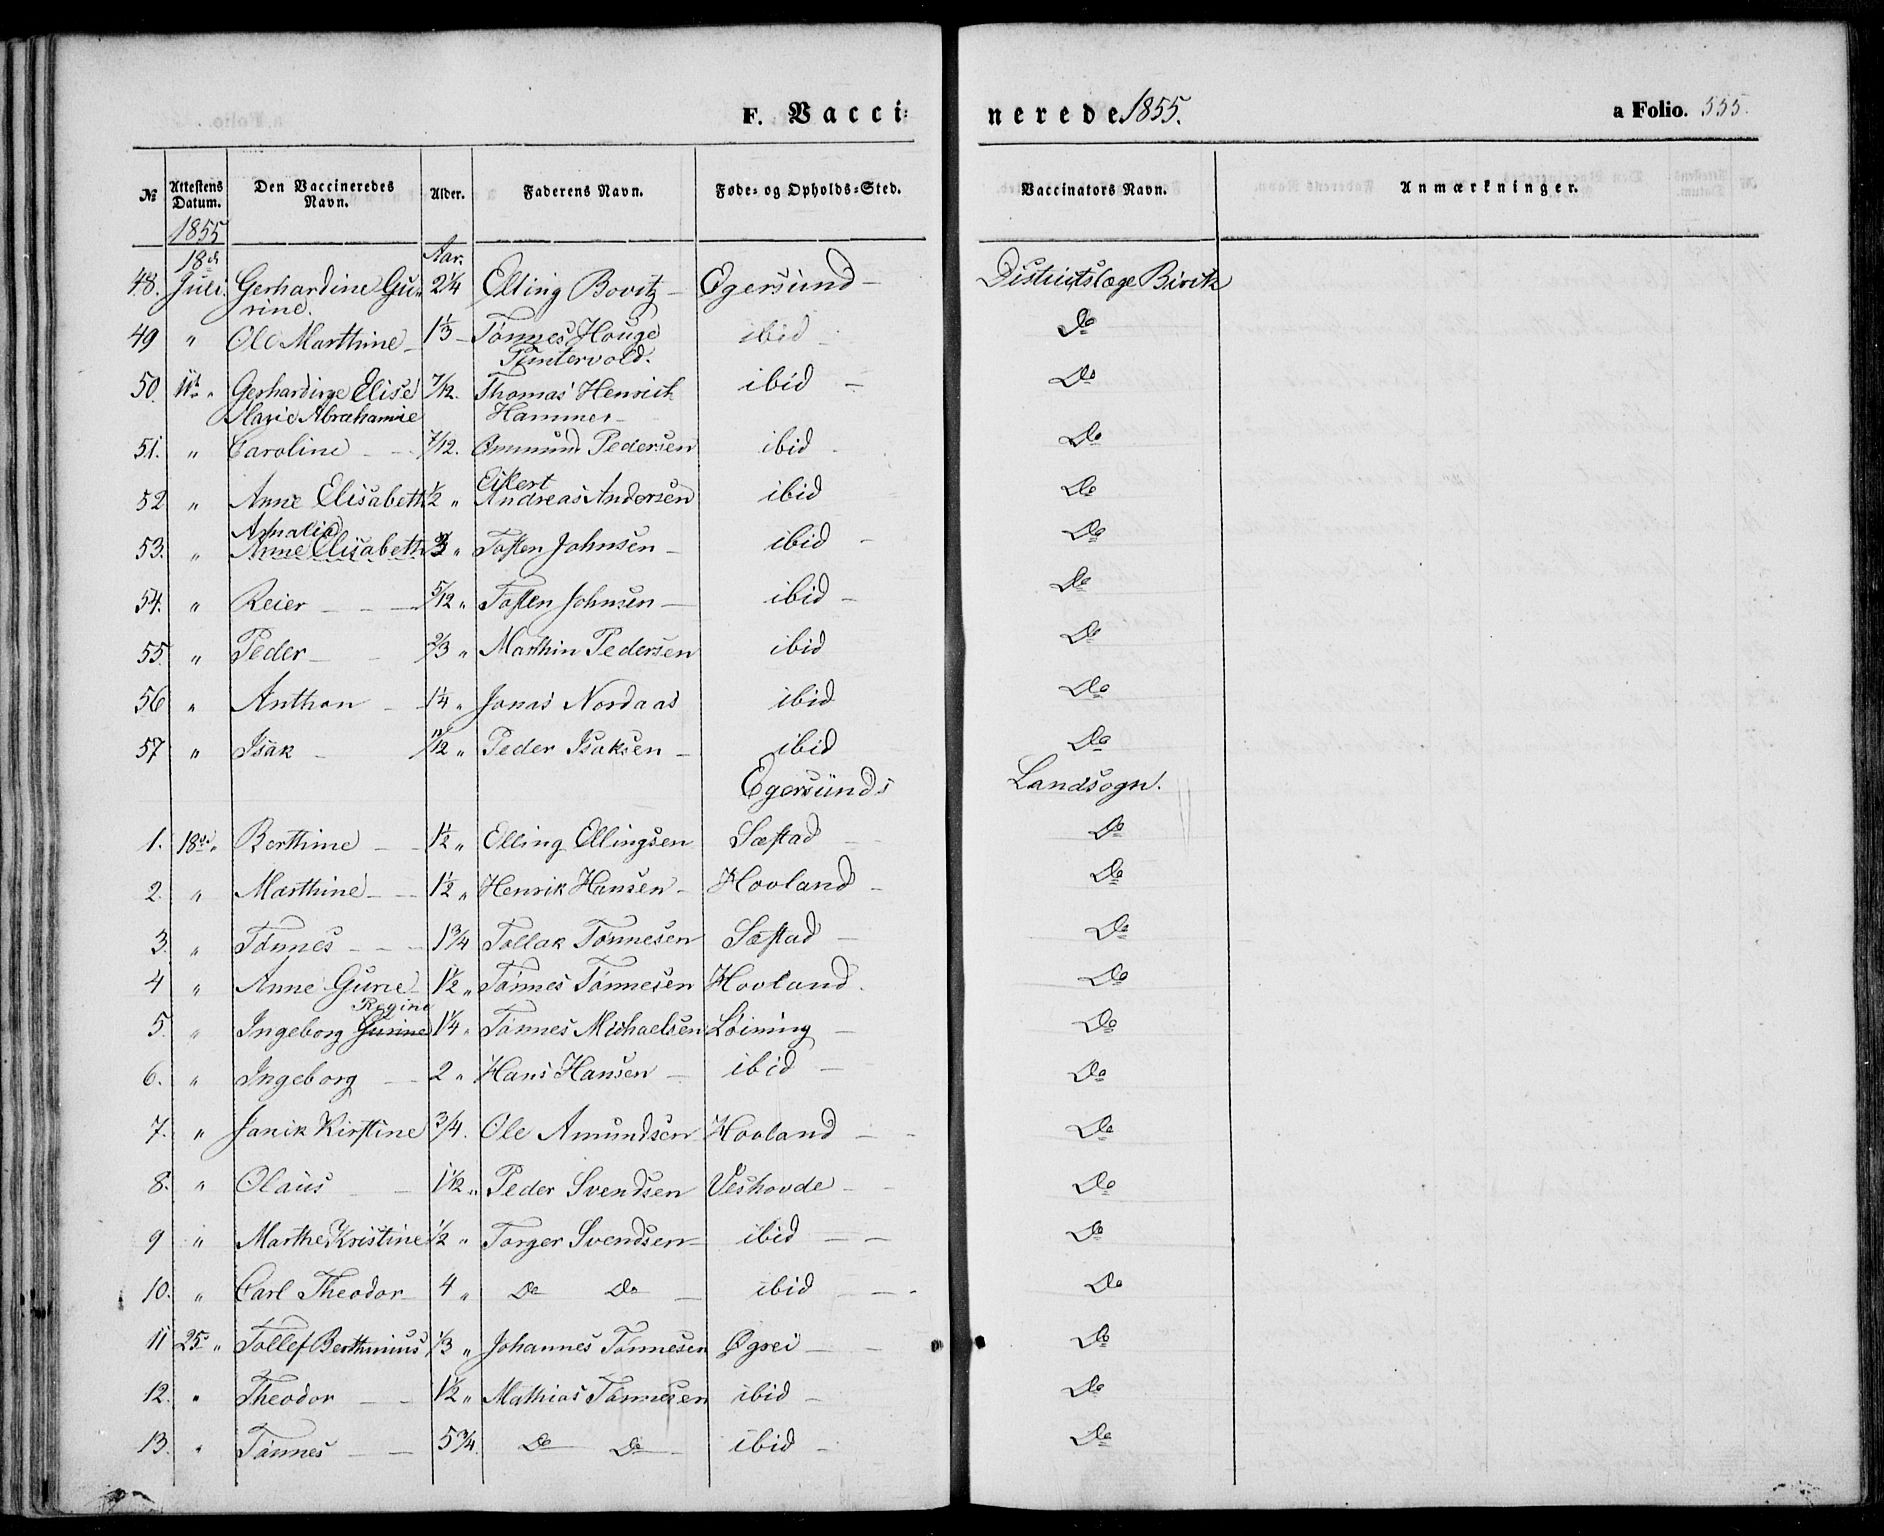 F. Vaccinerede 1855. a Folio. 555.
№ Attestens Datum. Den Vaccineredes Navn. Alder. Faderens Navn. Føde- og Opholds-Sted. Vaccinators Navn. Anmærkninger.
1855
18de Aar.
48. Juli. Gerhardine Gu- 2¼ Elling Bovitz Egersund Districtslæge Biritz
rine.
49 " Ole Marthine 1⅓ Tönnes Houge ibid Do
Puntervold.
50. 11te " Gerhardine Elise 7/12. Thomas Henrich ibid Do
Marie Abrahamie Hammer
51. " Caroline 7/12. Ommund Pedersen ibid Do
Eikert
52 " Anne Elisabeth ½ " Andreas Andersen ibid Do
Amalia
53. " Anne Elisabeth 2/3 " Tosten Johnsen ibid Do
54. " Reier 5/12 " Tosten Johnsen ibid Do
55. " Peder 2/3 " Marthin Pedersen ibid Do
56 " Anthon 1¼ " Jonas Nordaas ibid Do
57 " Isak 11/12 " Peder Isaksen ibid Do
Egersunds Landsogn.
1. 18de " Berthine 1½ " Elling Ellingsen Sæstad Do
2. " Marthine 1½ " Henrik Hansen Hovland Do
3. " Tönnes 1¾ Tollak Tönnesen Sæstad Do
4 " Anne Gurie 1½ " Tönnes Tönnesen Hovland. Do
Regine
5. " Ingeborg Gurine 1¼ " Tönnes Michaelsen Löining Do
6. " Ingeborg 2 " Hans Hansen ibid Do
7. " Janik Kirstine 3/4. Ole Amundsen Hovland Do
8. " Olaus 1½ " Peder Svendsen Veshovde Do
9 " Marthe Kristine ½ " Torger Svendsen ibid Do
10. " Carl Theodor 4 " Do Do ibid Do
11 25 " Tollef Berthinius 1/3 " Johannes Tönnesen Øgrei Do
12. " Theodor 1½ " Mathias Tönnesen ibid Do
13. " Tönnes 5¾ Do Do ibid Do